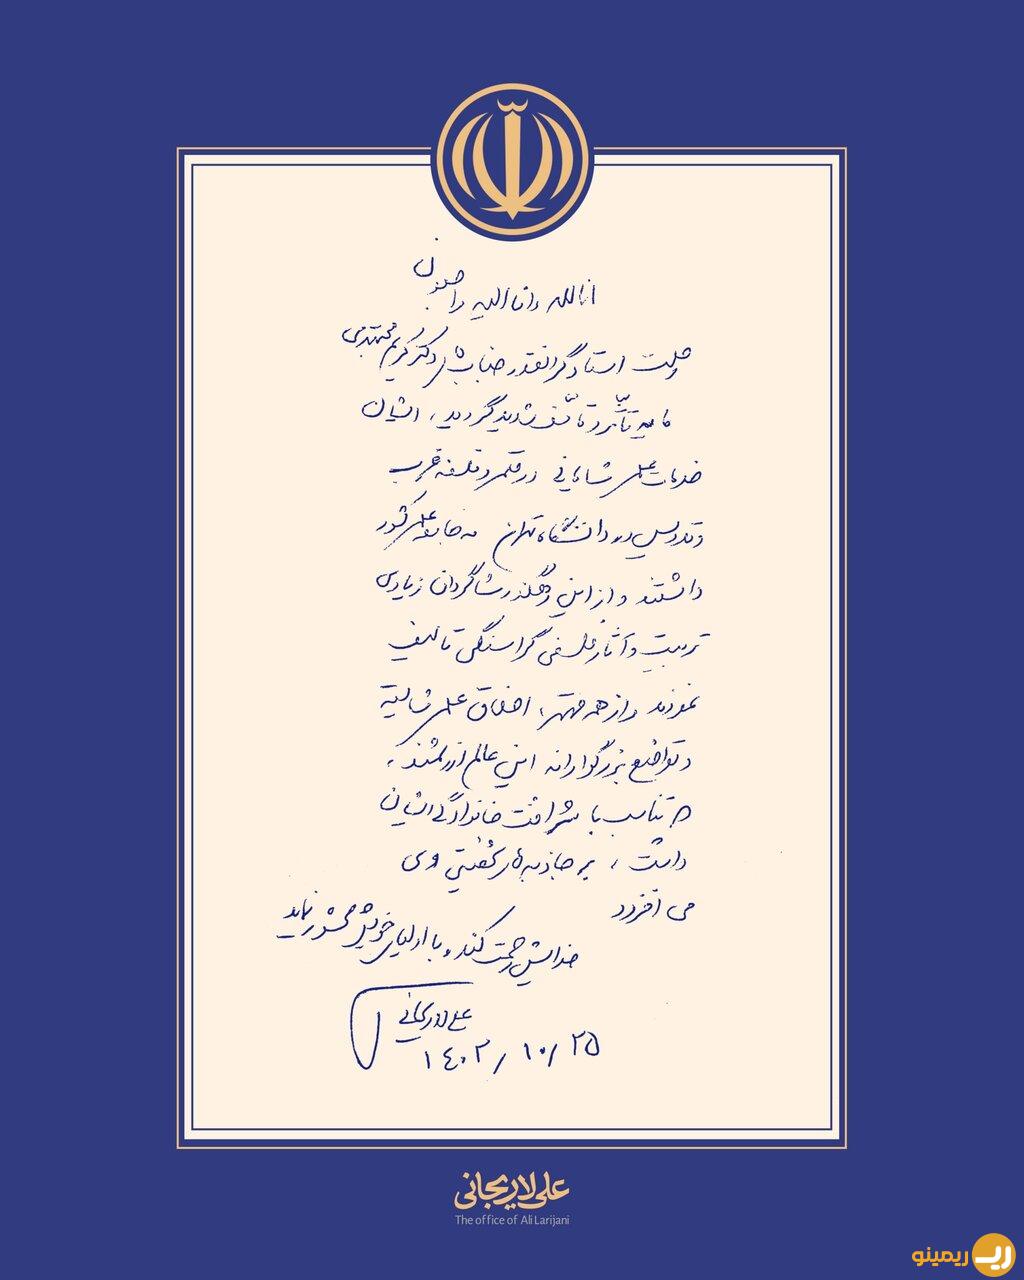 انا لله و انا الیه راجعون
رحلت استاد گرانقدر جناب آقای دکتر کریم مجتهدی
مایه تأثر و تأسف شدید گردید، ایشان
خدمات علمی شایانی در قلمرو فلسفه غرب
و تدریس در دانشگاه تهران به جامعه علمی کشور
داشتند و از این رهگذر شاگردان زیادی
تربیت و آثار فلسفی گرانسنگی تألیف
نمودند و از همه مهمتر، اخلاق علمی شایسته
و تواضع بزرگوارانه این عالم ارزشمند که
تناسب با شرافت خانوادگی ایشان
داشت، بر جاذبه‌های شخصیتی وی
می افزود
خدایش رحمت کند و با اولیای خویش محشور نماید
علی لاریجانی
۱۴۰۲/۱۰/۲۵
علی لاریجانی
The office of Ali Larijani
ریمینو